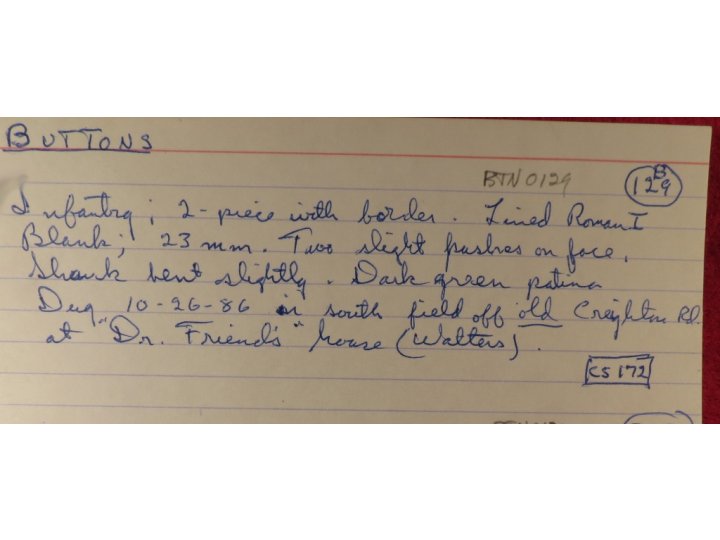 BUTTONS
BTN0129
B
129
Infantry; 2-piece with border. Lined Roman I
Blank; 23 mm. Two slight pushes on face,
Shank bent slightly. Dark green patina
Dug 10-26-86 in south field off old Creighton Rd.
at "Dr. Friend's" house (Walters).
CS 172